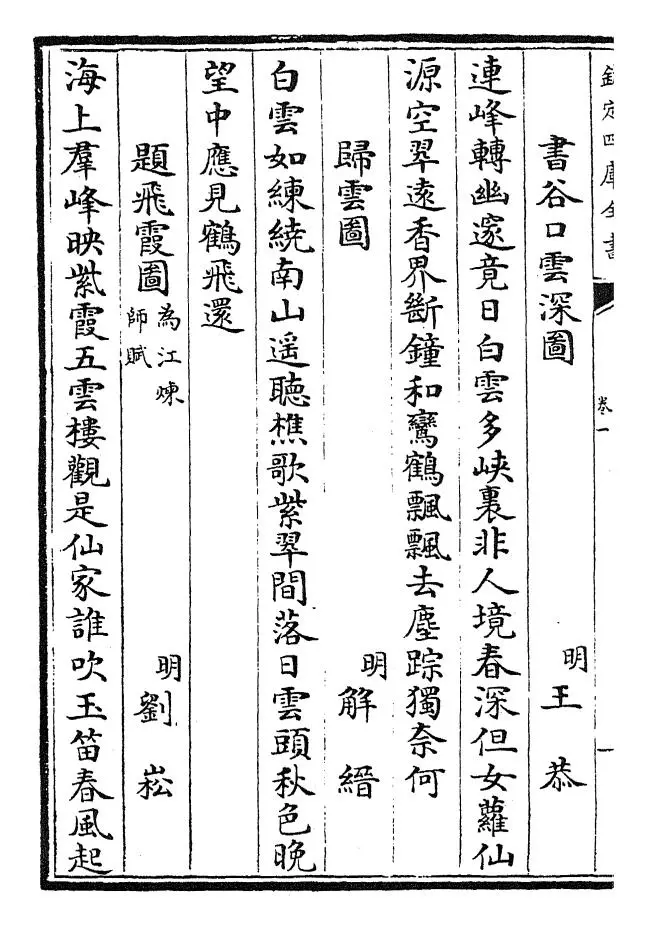 欽定四庫全書
卷一
書谷口雲深圖
明王恭
連峰轉幽邃竟日白雲多峽裏非人境春深但女蘿仙
源空翠遠香界斷鐘和鸞鶴飄飄去塵踪獨奈何
歸雲圖
明解縉
白雲如練繞南山遥聽樵歌紫翠間落日雲頭秋色晚
望中應見鶴飛還
題飛霞圖
為江煉
師賦
明劉崧
海上羣峰映紫霞五雲樓觀是仙家誰吹玉笛春風起